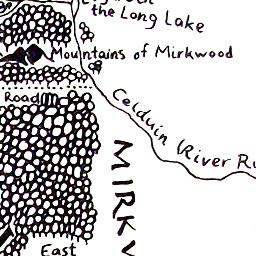 the Long Lake
Mountains of Mirkwood
Road
Celduin River
MIRK
East